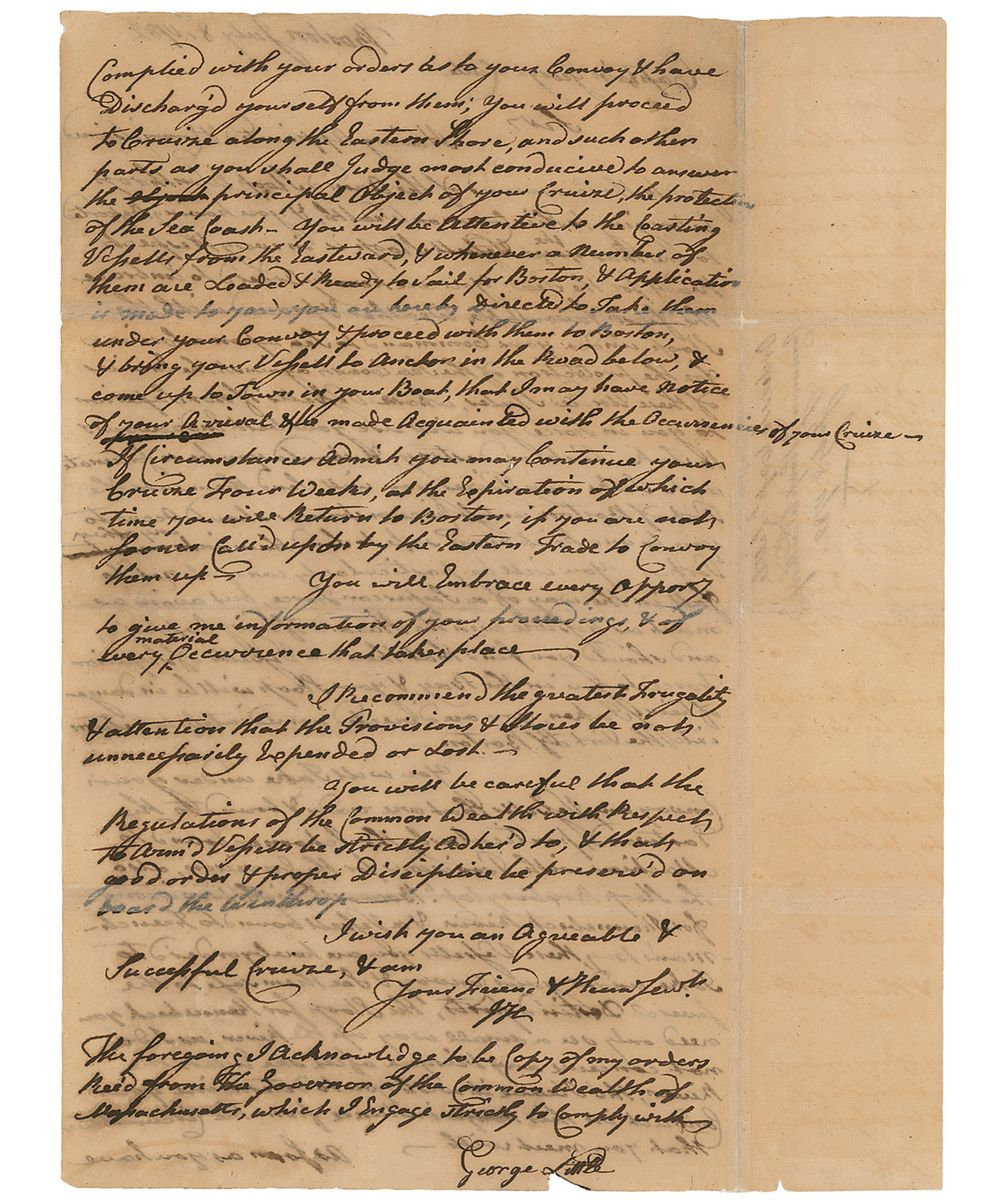 Complied with your orders as to your Convoy & have
Discharg'd yourself from them; You will proceed
to Cruize along the Eastern Shore, and such other
parts as you shall Judge most conducive to answer
the object principal Object of your Cruize, the protection
of the Sea Coast – You will be Attentive to the Coasting
Vessells from the Eastward, & whenever a Number of
them are Loaded & Ready to Sail for Boston, & Application
is made to you, you are hereby Directed to Take them
under your Convoy & proceed with them to Boston,
& bring your Vessell to Anchor in the Road below, &
come up to Town in your Boat, that I may have Notice
of your Arrival & be made Acquainted with the Occurrencies of your Cruize –
If Circumstances Admit you may Continue your
Cruize Four Weeks, at the Expiration of which
time you will Return to Boston, if you are not
sooner Call'd upon by the Eastern Trade to Convoy
them up – You will Embrace every Opporty.
to give me information of your proceedings, & of
material
every Occurrence that takes place –
I Recommend the greatest Frugality
& attention that the Provisions & Stores be not
unnecessarily Expended or Lost. –
You will be careful that the
Regulations of the Common Wealth with Respect
to Arm'd Vessells be strictly Adher'd to, & that
good order & proper Discipline be preserv'd on
board the Winthrop –
I wish you an Agreable &
Successful Cruize, & am
Your Friend & Hum Servt.
JH
The foregoing I Acknowledge to be Copy of my orders
Rec'd from The Governor of the Common Wealth of
Massachusetts, which I Engage strictly to Comply with
George Little